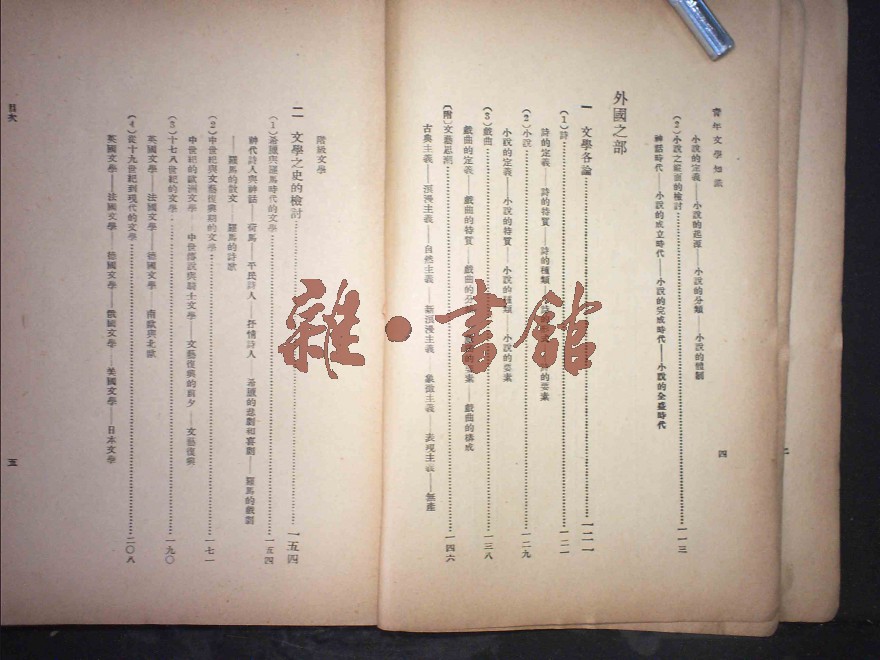 青年文學知識
小說的定義——小說的起源——小說的分類——小說的體制
(2)小說之縱面的檢討……一一三
神話時代——小說的成立時代——小說的完成時代——小說的全盛時代
四
外國之部
一 文學各論……一二一
(1)詩……一二一
詩的定義——詩的特質——詩的種類——詩的要素
(2)小說……一二九
小說的定義——小說的特質——小說的種類——小說的要素
(3)戲曲……一三八
戲曲的定義——戲曲的特質——戲曲的分 戲曲的要素——戲曲的構成
(附)文藝思潮……一四六
古典主義——浪漫主義——自然主義——新浪漫主義 象徵主義——表現主義——無產
階級文學
二 文學之史的檢討……一五四
(1)希臘與羅馬時代的文學……一五四
神代詩人與神話——荷馬——平民詩人——抒情詩人——希臘的悲劇和喜劇——羅馬的戲劇
——羅馬的散文——羅馬的詩歌
(2)中世紀與文藝復興期的文學……一七一
中世紀的歐洲文學——中世傳說與騎士文學——文藝復興的前夕——文藝復興
(3)十七八世紀的文學……一九〇
英國文學——法國文學——德國文學——南歐與北歐
(4)從十九世紀到現代的文學……二〇八
英國文學——法國文學——德國文學——俄國文學——美國文學——日本文學
目次
五
二
雜·書館